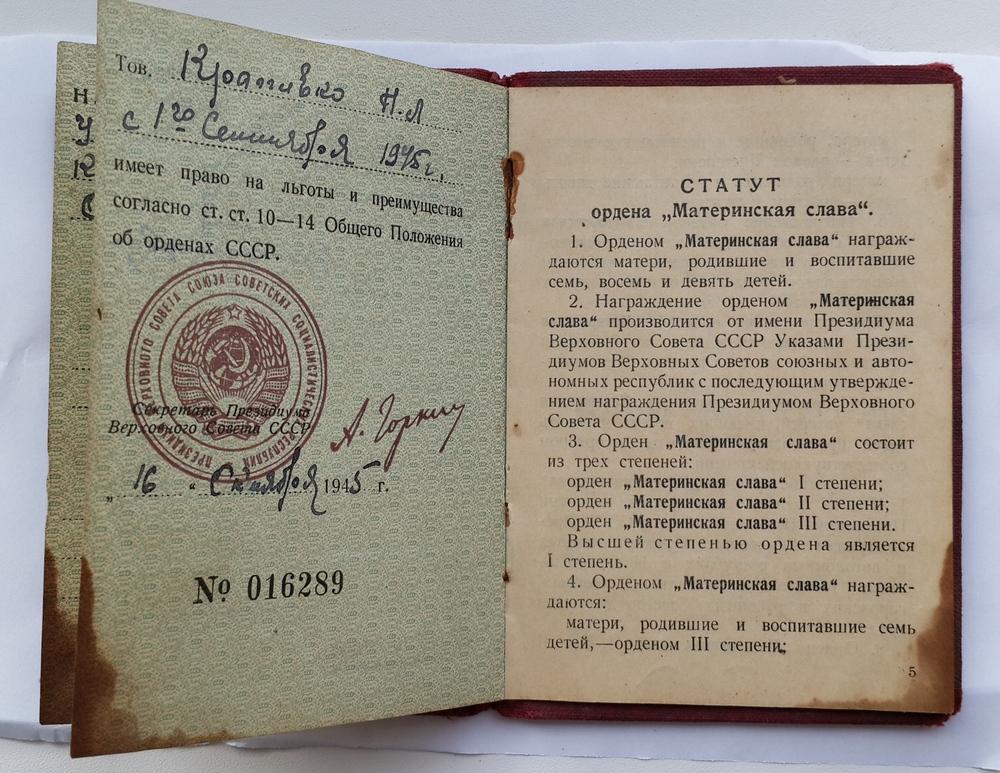 Н
У
Тов. Кропивко П.Л
с 1го Сентября 1945г.
имеет право на льготы и преимущества
согласно ст. ст. 10—14 Общего Положения
об орденах СССР.
ПРЕЗИДИУМ ВЕРХОВНОГО СОВЕТА СОЮЗА СОВЕТСКИХ СОЦИАЛИСТИЧЕСКИХ РЕСПУБЛИК
Секретарь Президиума
Верховного Совета СССР
А. Горкин
„ 16 “ Сентября 1945 г.
№ 016289
СТАТУТ
ордена „Материнская слава“.
1. Орденом „Материнская слава“ награж-
даются матери, родившие и воспитавшие
семь, восемь и девять детей.
2. Награждение орденом „Материнская
слава“ производится от имени Президиума
Верховного Совета СССР Указами Прези-
диумов Верховных Советов союзных и авто-
номных республик с последующим утвержде-
нием награждения Президиумом Верховного
Совета СССР.
3. Орден „Материнская слава“ состоит
из трех степеней:
орден „Материнская слава“ I степени;
орден „Материнская слава“ II степени;
орден „Материнская слава“ III степени.
Высшей степенью ордена является
I степень.
4. Орденом „Материнская слава“ награж-
даются:
матери, родившие и воспитавшие семь
детей,—орденом III степени;
5